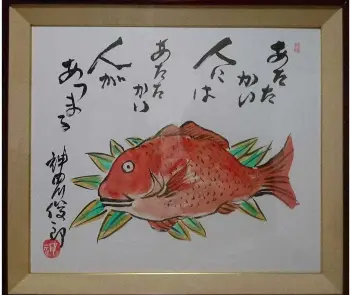 あたた
かい
人には
あたた
かい
人が
あつまる
神田川俊郎